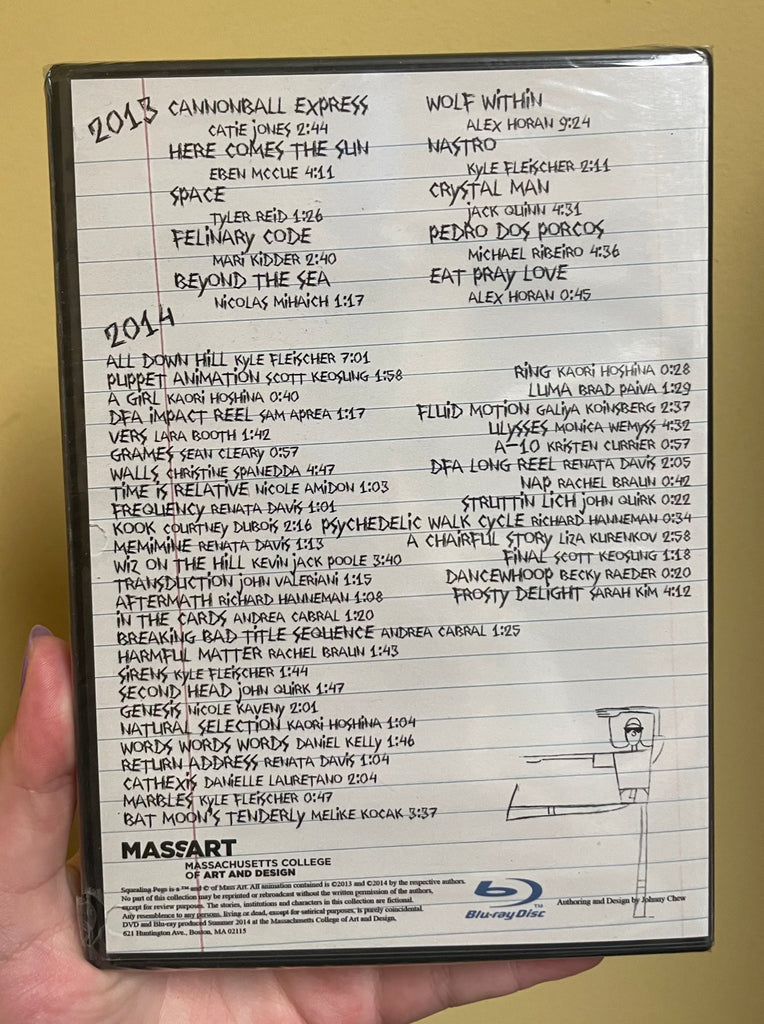 2013
CANNONBALL EXPRESS
CATIE JONES 2:44
HERE COMES THE SUN
EBEN MCCUE 4:11
SPACE
TYLER REID 1:26
FELINARY CODE
MARI KIDDER 2:40
BEYOND THE SEA
NICOLAS MIHAICH 1:17
WOLF WITHIN
ALEX HORAN 9:24
NASTRO
KYLE FLEISCHER 2:11
CRYSTAL MAN
JACK QUINN 4:31
PEDRO DOS PORCOS
MICHAEL RIBEIRO 4:36
EAT PRAY LOVE
ALEX HORAN 0:45
2014
ALL DOWN HILL KYLE FLEISCHER 7:01
PUPPET ANIMATION SCOTT KEOSLING 1:58
A GIRL KAORI HOSHINA 0:40
DFA IMPACT REEL SAM APREA 1:17
VERS LARA BOOTH 1:42
GRAMES SEAN CLEARY 0:57
WALLS CHRISTINE SPANEDDA 4:47
TIME IS RELATIVE NICOLE AMIDON 1:03
FREQUENCY RENATA DAVIS 1:01
KOOK COURTNEY DUBOIS 2:16
MEMIMINE RENATA DAVIS 1:13
WIZ ON THE HILL KEVIN JACK POOLE 3:40
TRANSDUCTION JOHN VALERIANI 1:15
AFTERMATH RICHARD HANNEMAN 1:08
IN THE CARDS ANDREA CABRAL 1:20
BREAKING BAD TITLE SEQUENCE ANDREA CABRAL 1:25
HARMFUL MATTER RACHEL BRAUN 1:43
SIRENS KYLE FLEISCHER 1:44
SECOND HEAD JOHN QUIRK 1:47
GENESIS NICOLE KAVENY 2:01
NATURAL SELECTION KAORI HOSHINA 1:04
WORDS WORDS WORDS DANIEL KELLY 1:46
RETURN ADDRESS RENATA DAVIS 1:04
CATHEXIS DANIELLE LAURETANO 2:04
MARBLES KYLE FLEISCHER 0:47
BAT MOON'S TENDERLY MELIKE KOCAK 3:37
RING KAORI HOSHINA 0:28
LUMA BRAD PAIVA 1:29
FLUID MOTION GALIYA KOINSBERG 2:37
ULYSSES MONICA WEMYSS 4:32
A-10 KRISTEN CURRIER 0:57
DFA LONG REEL RENATA DAVIS 2:05
NAP RACHEL BRAUN 0:42
STRUTTIN LICH JOHN QUIRK 0:22
PSYCHEDELIC WALK CYCLE RICHARD HANNEMAN 0:34
A CHAIRFUL STORY LIZA KURENKOV 2:58
FINAL SCOTT KEOSLING 1:18
DANCEWHOOP BECKY RAEDER 0:20
FROSTY DELIGHT SARAH KIM 4:12
MASSART
MASSACHUSETTS COLLEGE
OF ART AND DESIGN
Squealing Pegs is a ™ and © of Mass Art. All animation contained is ©2013 and ©2014 by the respective authors.
No part of this collection may be reprinted or rebroadcast without the written permission of the authors,
except for review purposes. The stories, institutions and characters in this collection are fictional.
Any resemblance to any persons, living or dead, except for satirical purposes, is purely coincidental.
DVD and Blu-ray produced Summer 2014 at the Massachusetts College of Art and Design,
621 Huntington Ave., Boston, MA 02115
Blu-ray Disc™
Authoring and Design by Johnny Chew